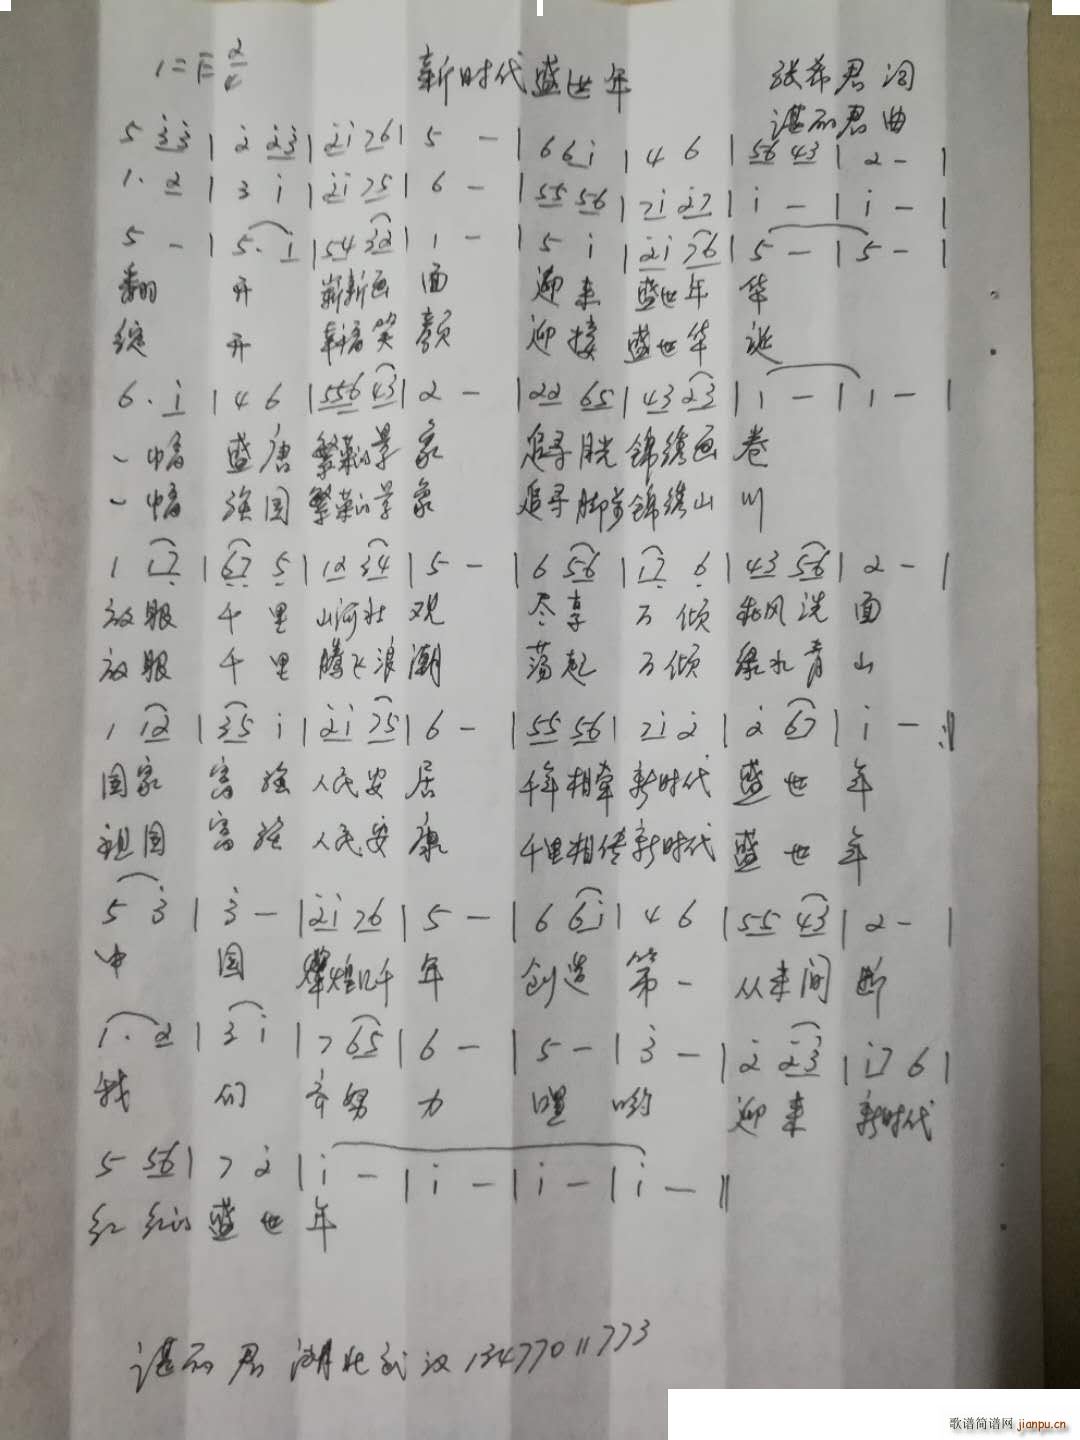 1=E 2/4 新时代盛世年 张希君 词
谌丽君 曲
5 3̇3̇ | 2̇ 2̇3̇ | 2̇1̇ 76 | 5 - | 6 61̇ | 4 6 | 56 43 | 2 - |
1. 2 | 3 1̇ | 2̇1̇ 75 | 6 - | 55 56 | 71̇ 2̇7 | 1̇ - | 1̇ - |
5 - | 5. 1̇ | 54 32 | 1 - | 5 1̇ | 2̇1̇ 76 | 5 - | 5 - |
翻 开 崭新画 面 迎来 盛世年 华
绽 开 幸福笑 颜 迎接 盛世华 诞
6. 1̇ | 4 6 | 556 43 | 2 - | 22 65 | 43 23 | 1 - | 1 - |
一幅 盛唐 繁荣的景 象 追寻目光 锦绣画 卷
一幅 强国 繁荣的景 象 追寻脚步 锦绣山 川
1 17̣ | 6̣7̣ 5̣ | 12 34 | 5 - | 6 56 | 17̣ 6̣ | 43 56 | 2 - |
放眼 千里 山河壮 观 尽享 万倾 和风洗 面
放眼 千里 腾飞浪 潮 荡起 万倾 绿水青 山
1 12 | 35 1̇ | 2̇1̇ 75 | 6 - | 55 56 | 71̇ 2̇ | 2̇ 67 | 1̇ - :||
国家 富强 人民安 居 千年相牵 新时代 盛世 年
祖国 富强 人民安 康 千里相传 新时代 盛世 年
5 3̇ | 3̇ - | 2̇1̇ 76 | 5 - | 6 61̇ | 4 6 | 55 43 | 2 - |
中 国 辉煌几千 年 创造 第一 从未间 断
1. 2 | 3 1̇ | 7 65 | 6 - | 5 - | 3̇ - | 2̇ 2̇3̇ | 1̇7 6 |
我 们 齐努 力 嘿 哟 迎来 新时代
5 56 | 7 2̇ | 1̇ - | 1̇ - | 1̇ - | 1̇ - ||
红红的 盛世 年
谌丽君 湖北武汉 13477011773
歌谱简谱网 jianpu.cn